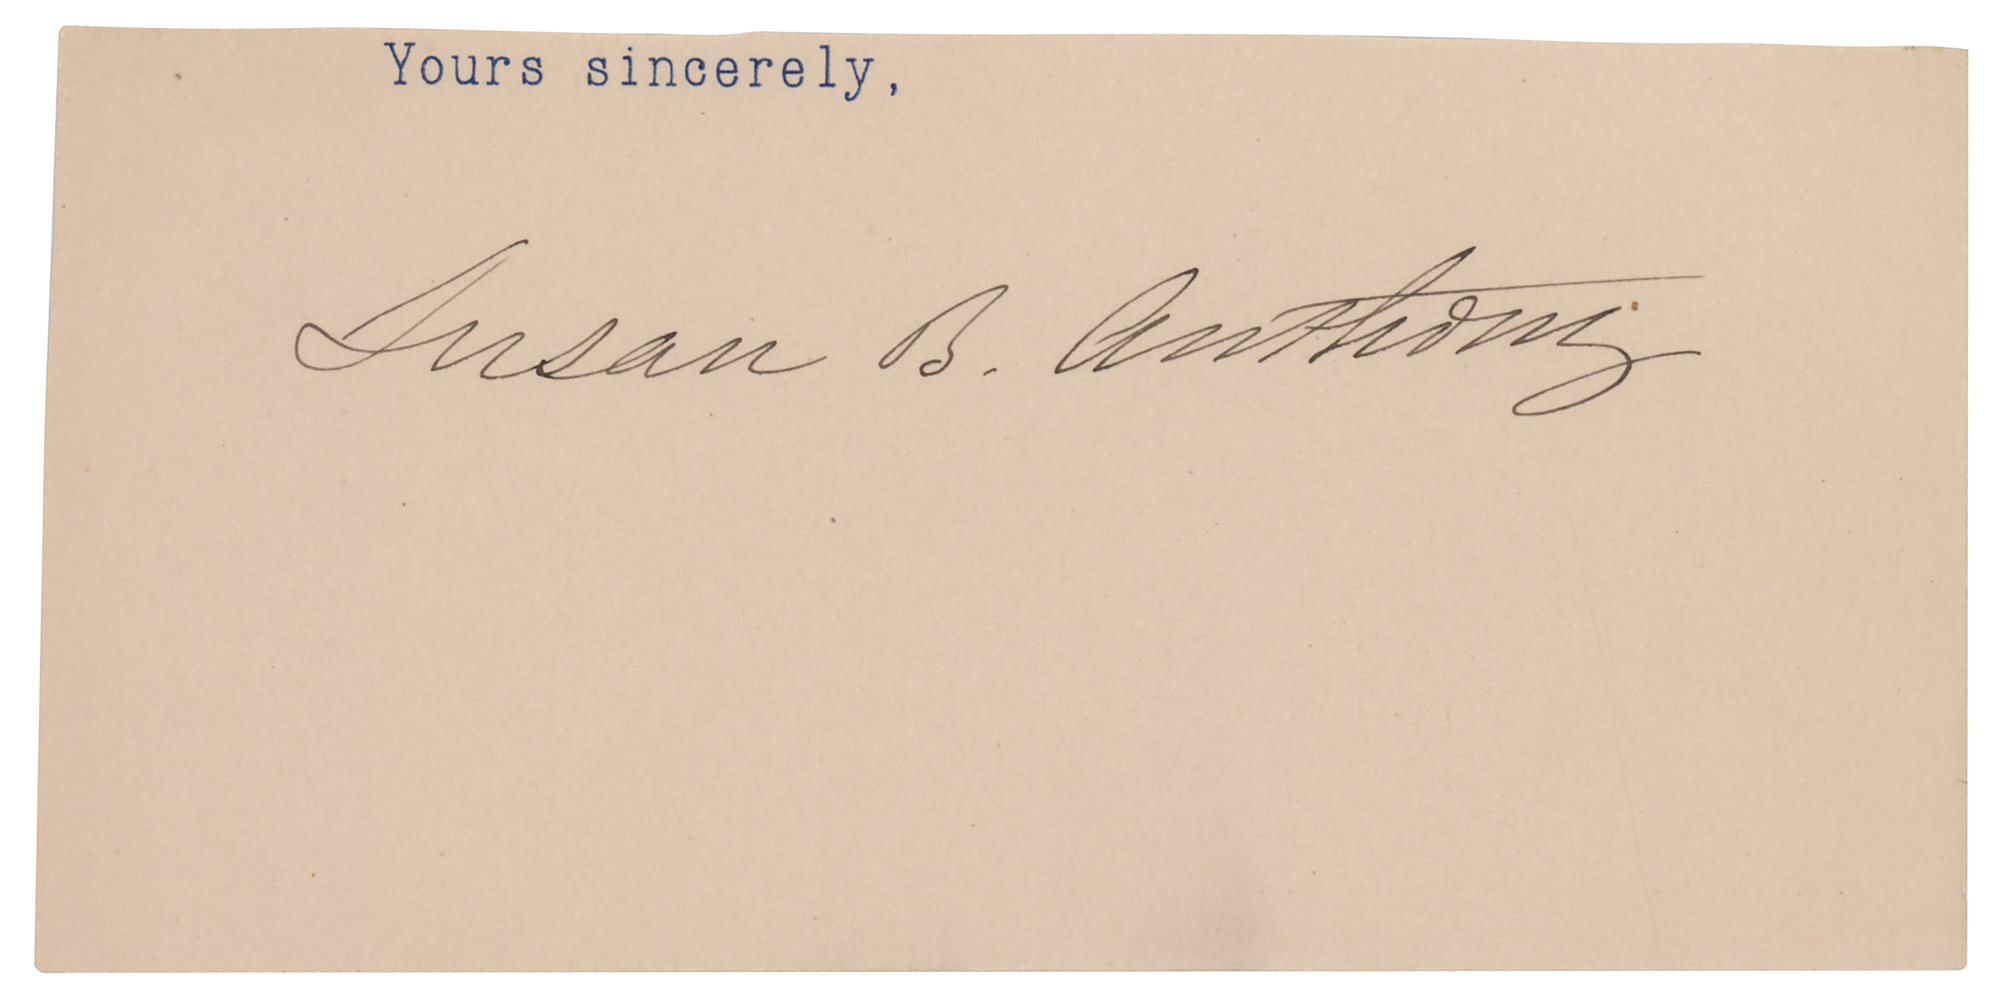 Yours sincerely,
Susan B. Anthony